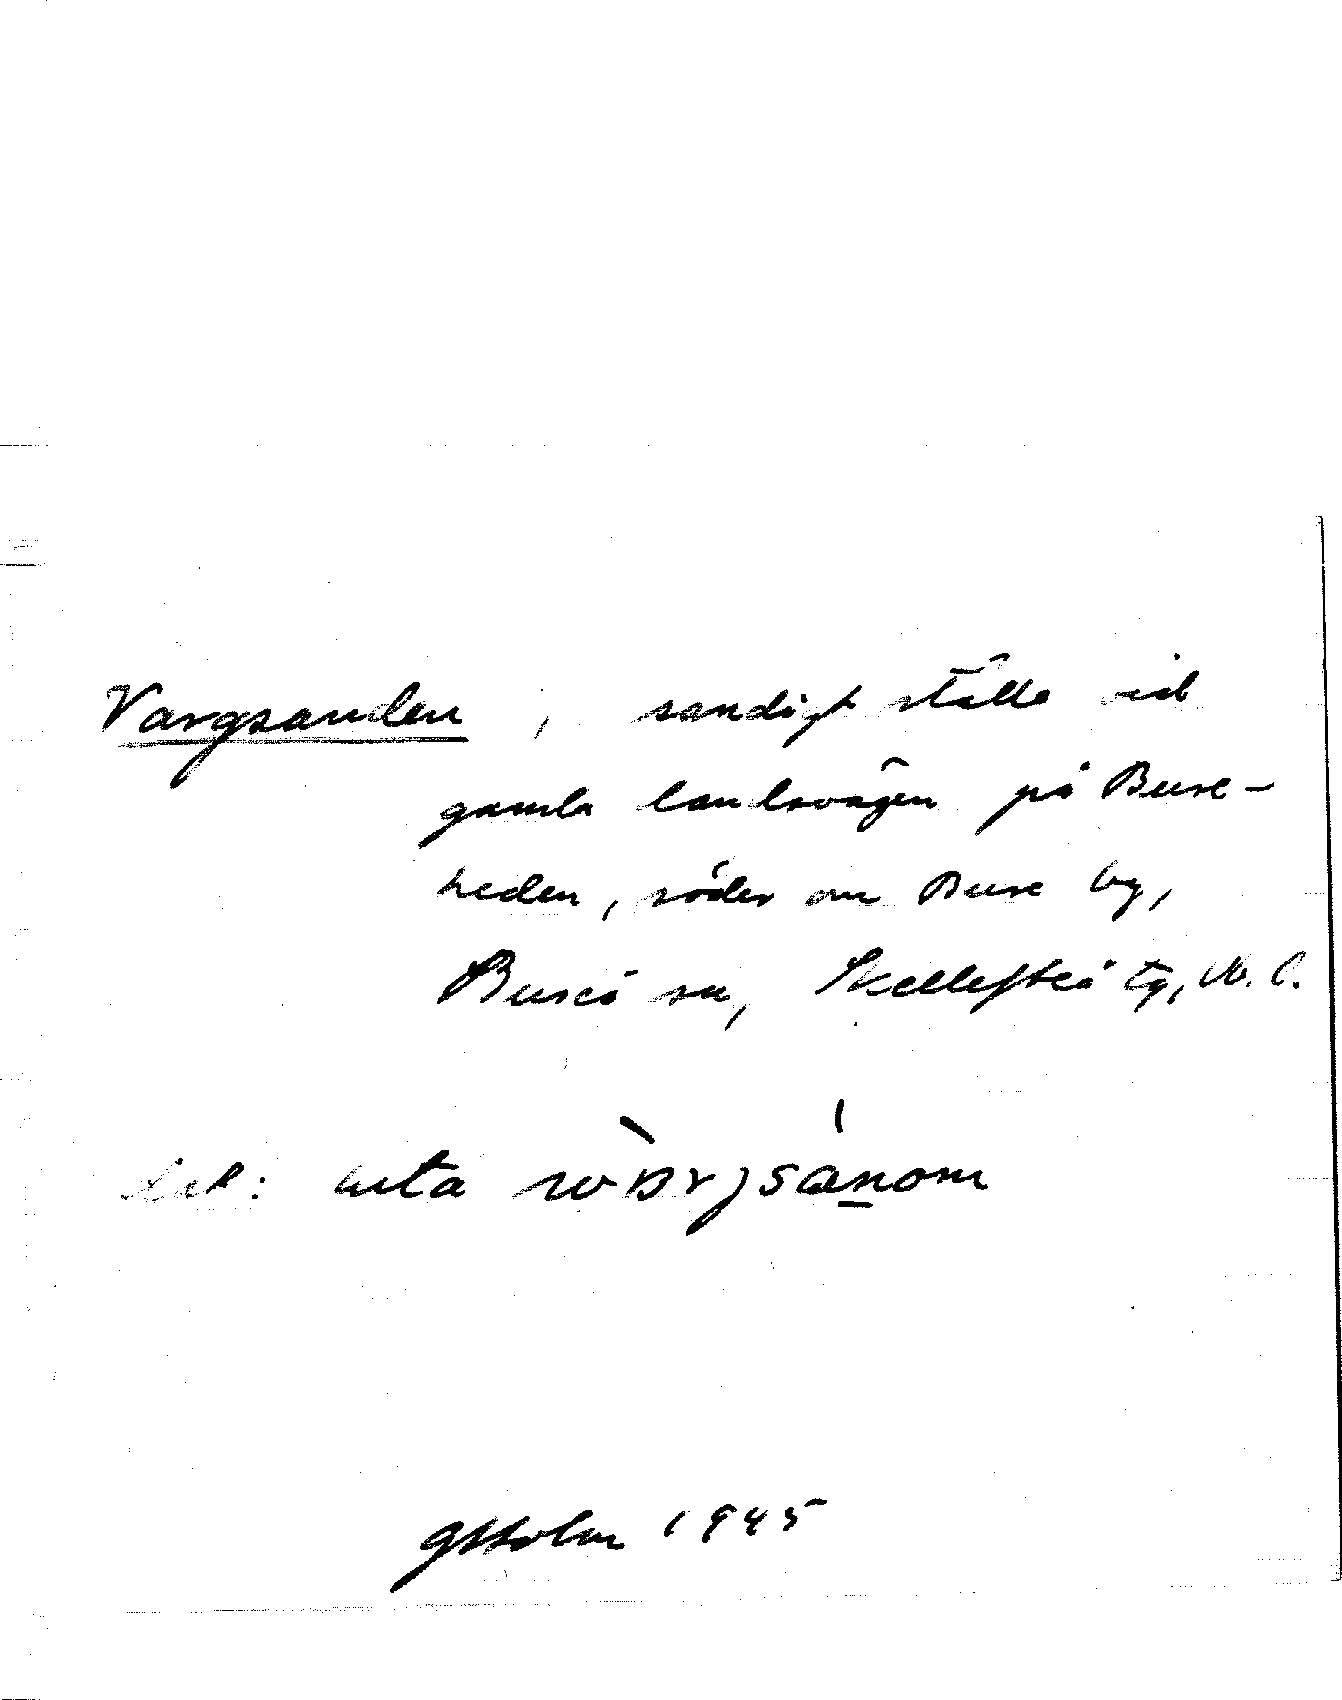 Vargsanden, sandigt ställe vid
gamla landsvägen på Bure-
heden, söder om Bure by,
Bureå sn, Skellefteå tg, V. b.
Dat: uta
GHolm 1945